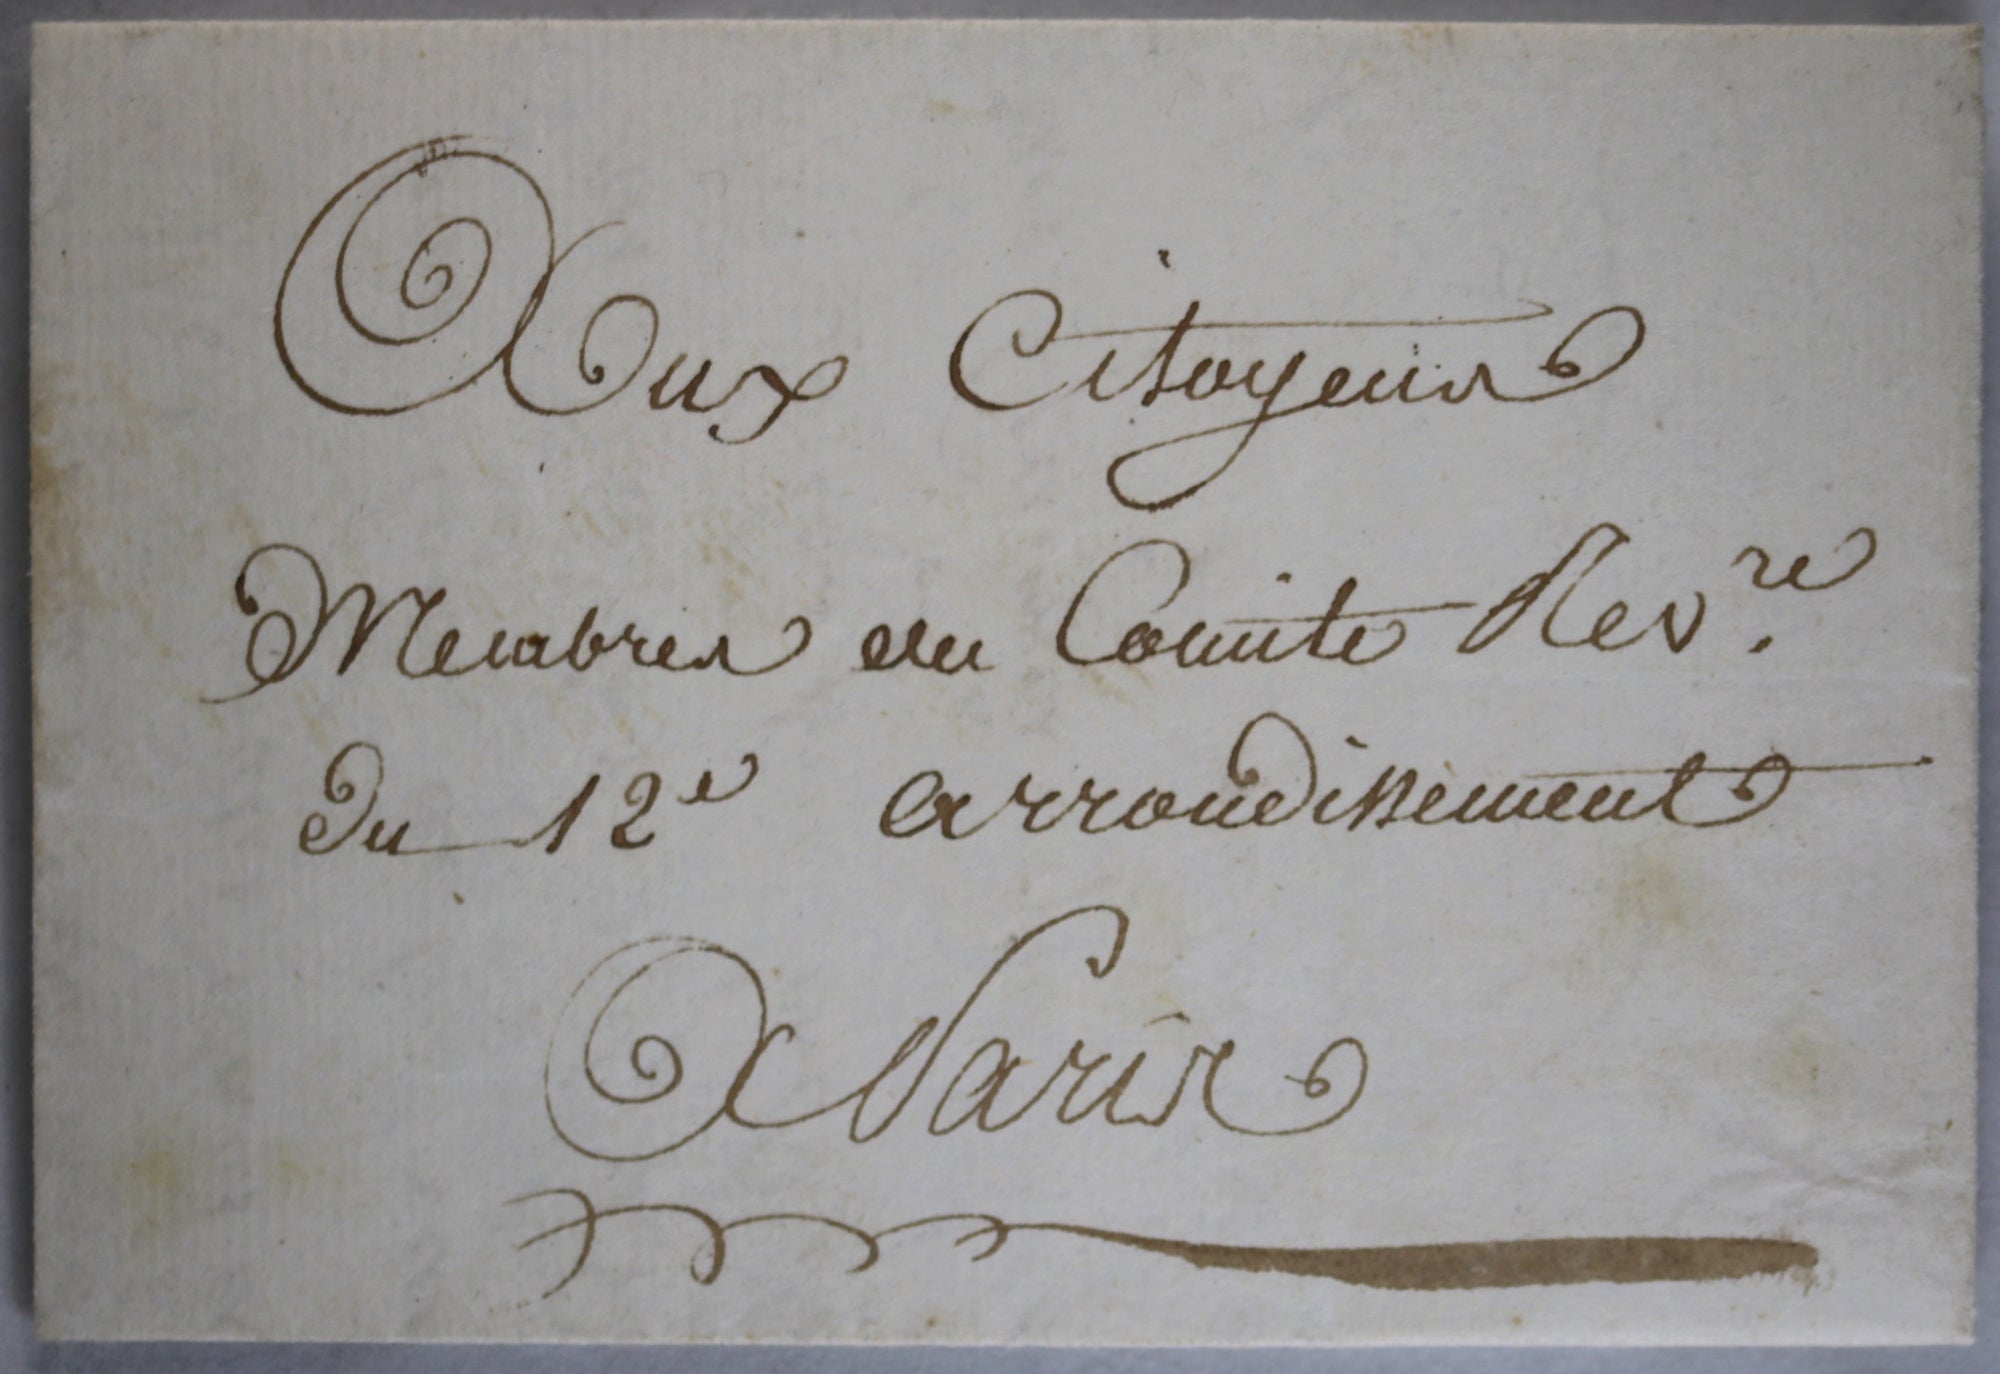 Aux Citoyens
Membres du Comité Rev.re
Du 12e arrondissement
A Paris